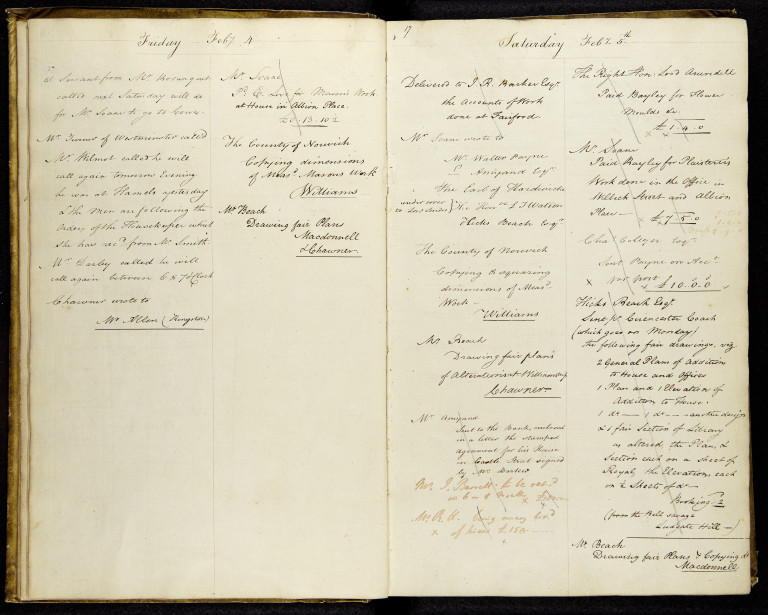 Friday Feby. 4
A Servant from Mr. Bosanquet
called next Saturday will do
for Mr. Soane to go to Town.
Mr. Turner of Westminster called
Mr. Wilmot called he will
call again tomorrow Evening
he was at Hamels yesterday
& the Men are following the
orders of the Housekeeper what
She has recd. from Mr. Smith
Mr. Darby called he will
call again between 6 & 7 oClock
Chawner wrote to
Mr. Allen (Kingston)
Mr. Soane
for Masons Work
at House in Albion Place.
£0.13.10½
The County of Norwich
Copying dimensions
of Measd. Masons Work
Williams
Mr. Beach
Drawing fair Plans
Macdonnell
& Chawner
17
Saturday Feby. 5th
Delivered to J. R. Barker Esqr.
the Accounts of Work
done at Fairford.
Mr. Soane wrote to
Mr. Walter Payne
Amyand Esqr.
The Earl of Hardwicke
under cover
to Lord
The Honble. L J Watson
Hicks Beach Esqr.
The County of Norwich
Copying & squaring
dimensions of Measd.
Work
Williams
Mr. Beach
Drawing fair plans
of Alterations at Williamstrip
Chawner
Mr. Amyand
Sent to the Bank, enclosed
in a letter the stamped
agreement for his House
in Castle Street signed
by Mr.
Mr. J. to be recd.
in 6 or 8 Months
Mr. B. H. being money
of him £150
The Right Hon: Lord Arundell
Paid Bayley for Flower
Moulds &c.
£1.9.0
Mr. Soane
Paid Bayley for Plasterers
Work done in the Office in
Welbeck Street and Albion
Place
£7.5.0
Chas. Collyer Esqr.
Sent Payne on Acct.
per post
£10.0.0
Hicks Beach Esqr.
Sent pr. Cirencester Coach
(which goes on Monday)
the following fair drawings, viz
2 General Plans of Addition
to House and Offices
1 Plan and 1 Elevation of
Addition to House.
1 do. 1 do. another design
& 1 fair Section of Library
as altered, the Plans, &
Section each on a sheet of
Royal, the Elevations each
on ½ Sheets of do.
Booking 2
(from the Bell Savage
Ludgate Hill)
Mr. Beach
Drawing fair Plans & Copying do
Macdonnell